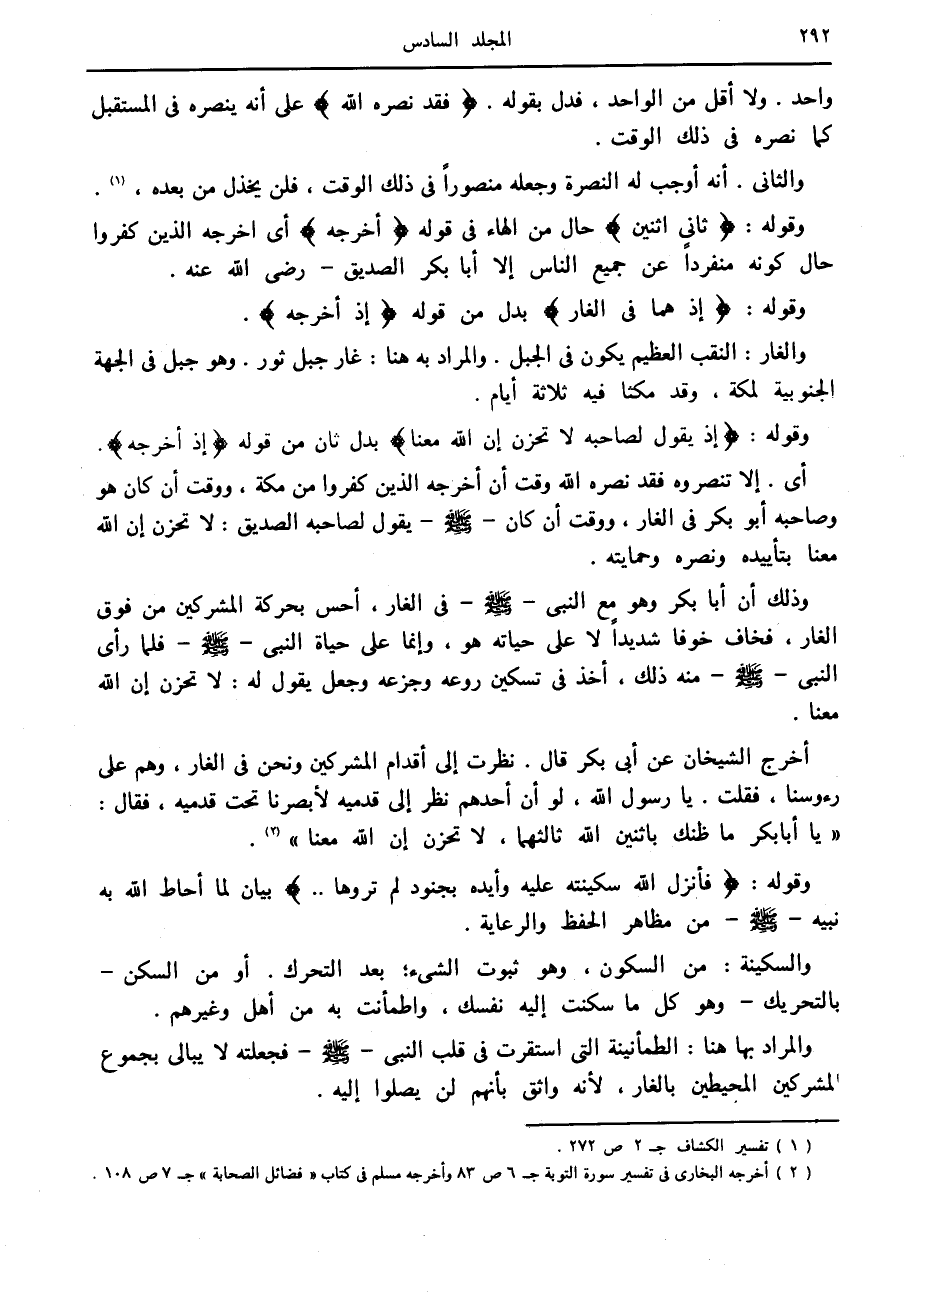 ٢٩٢ المجلد السادس
واحد . ولا أقل من الواحد ، فدل بقوله . ﴿ فقد نصره الله ﴾ على أنه ينصره فى المستقبل
كما نصره فى ذلك الوقت .
والثانى . أنه أوجب له النصرة وجعله منصوراً فى ذلك الوقت ، فلن يخذل من بعده ، (١) .
وقوله : ﴿ ثانى اثنين ﴾ حال من الهاء فى قوله ﴿ أخرجه ﴾ أى اخرجه الذين كفروا
حال كونه منفرداً عن جميع الناس إلا أبا بكر الصديق – رضى الله عنه .
وقوله : ﴿ إذ هما فى الغار ﴾ بدل من قوله ﴿ إذ أخرجه ﴾ .
والغار : النقب العظيم يكون فى الجبل . والمراد به هنا : غار جبل ثور . وهو جبل فى الجهة
الجنوبية لمكة ، وقد مكثا فيه ثلاثة أيام .
وقوله : ﴿ إذ يقول لصاحبه لا تحزن إن الله معنا﴾ بدل ثان من قوله ﴿ إذ أخرجه ﴾.
أى . إلا تنصروه فقد نصره الله وقت أن أخرجه الذين كفروا من مكة ، ووقت أن كان هو
وصاحبه أبو بكر فى الغار ، ووقت أن كان – ﷺ – يقول لصاحبه الصديق : لا تحزن إن الله
معنا بتأييده ونصره وحمايته .
وذلك أن أبا بكر وهو مع النبى – ﷺ – فى الغار ، أحس بحركة المشركين من فوق
الغار ، فخاف خوفا شديداً لا على حياته هو ، وإنما على حياة النبى – ﷺ – فلما رأى
النبى – ﷺ – منه ذلك ، أخذ فى تسكين روعه وجزعه وجعل يقول له : لا تحزن إن الله
معنا .
أخرج الشيخان عن أبى بكر قال . نظرت إلى أقدام المشركين ونحن فى الغار ، وهم على
رءوسنا ، فقلت . يا رسول الله ، لو أن أحدهم نظر إلى قدميه لأبصرنا تحت قدميه ، فقال :
« يا أبابكر ما ظنك باثنين الله ثالثهما ، لا تحزن إن الله معنا » (٢) .
وقوله : ﴿ فأنزل الله سكينته عليه وأيده بجنود لم تروها .. ﴾ بيان لما أحاط الله به
نبيه – ﷺ – من مظاهر الحفظ والرعاية .
والسكينة : من السكون ، وهو ثبوت الشىء؛ بعد التحرك . أو من السكن –
بالتحريك – وهو كل ما سكنت إليه نفسك ، واطمأنت به من أهل وغيرهم .
والمراد بها هنا : الطمأنينة التى استقرت فى قلب النبى – ﷺ – فجعلته لا يبالى بجموع
المشركين المحيطين بالغار ، لأنه واثق بأنهم لن يصلوا إليه .
( ١ ) تفسير الكشاف جـ ٢ ص ٢٧٢ .
( ٢ ) أخرجه البخارى فى تفسير سورة التوبة جـ ٦ ص ٨٣ وأخرجه مسلم فى كتاب « فضائل الصحابة » جـ ٧ ص ١٠٨ .